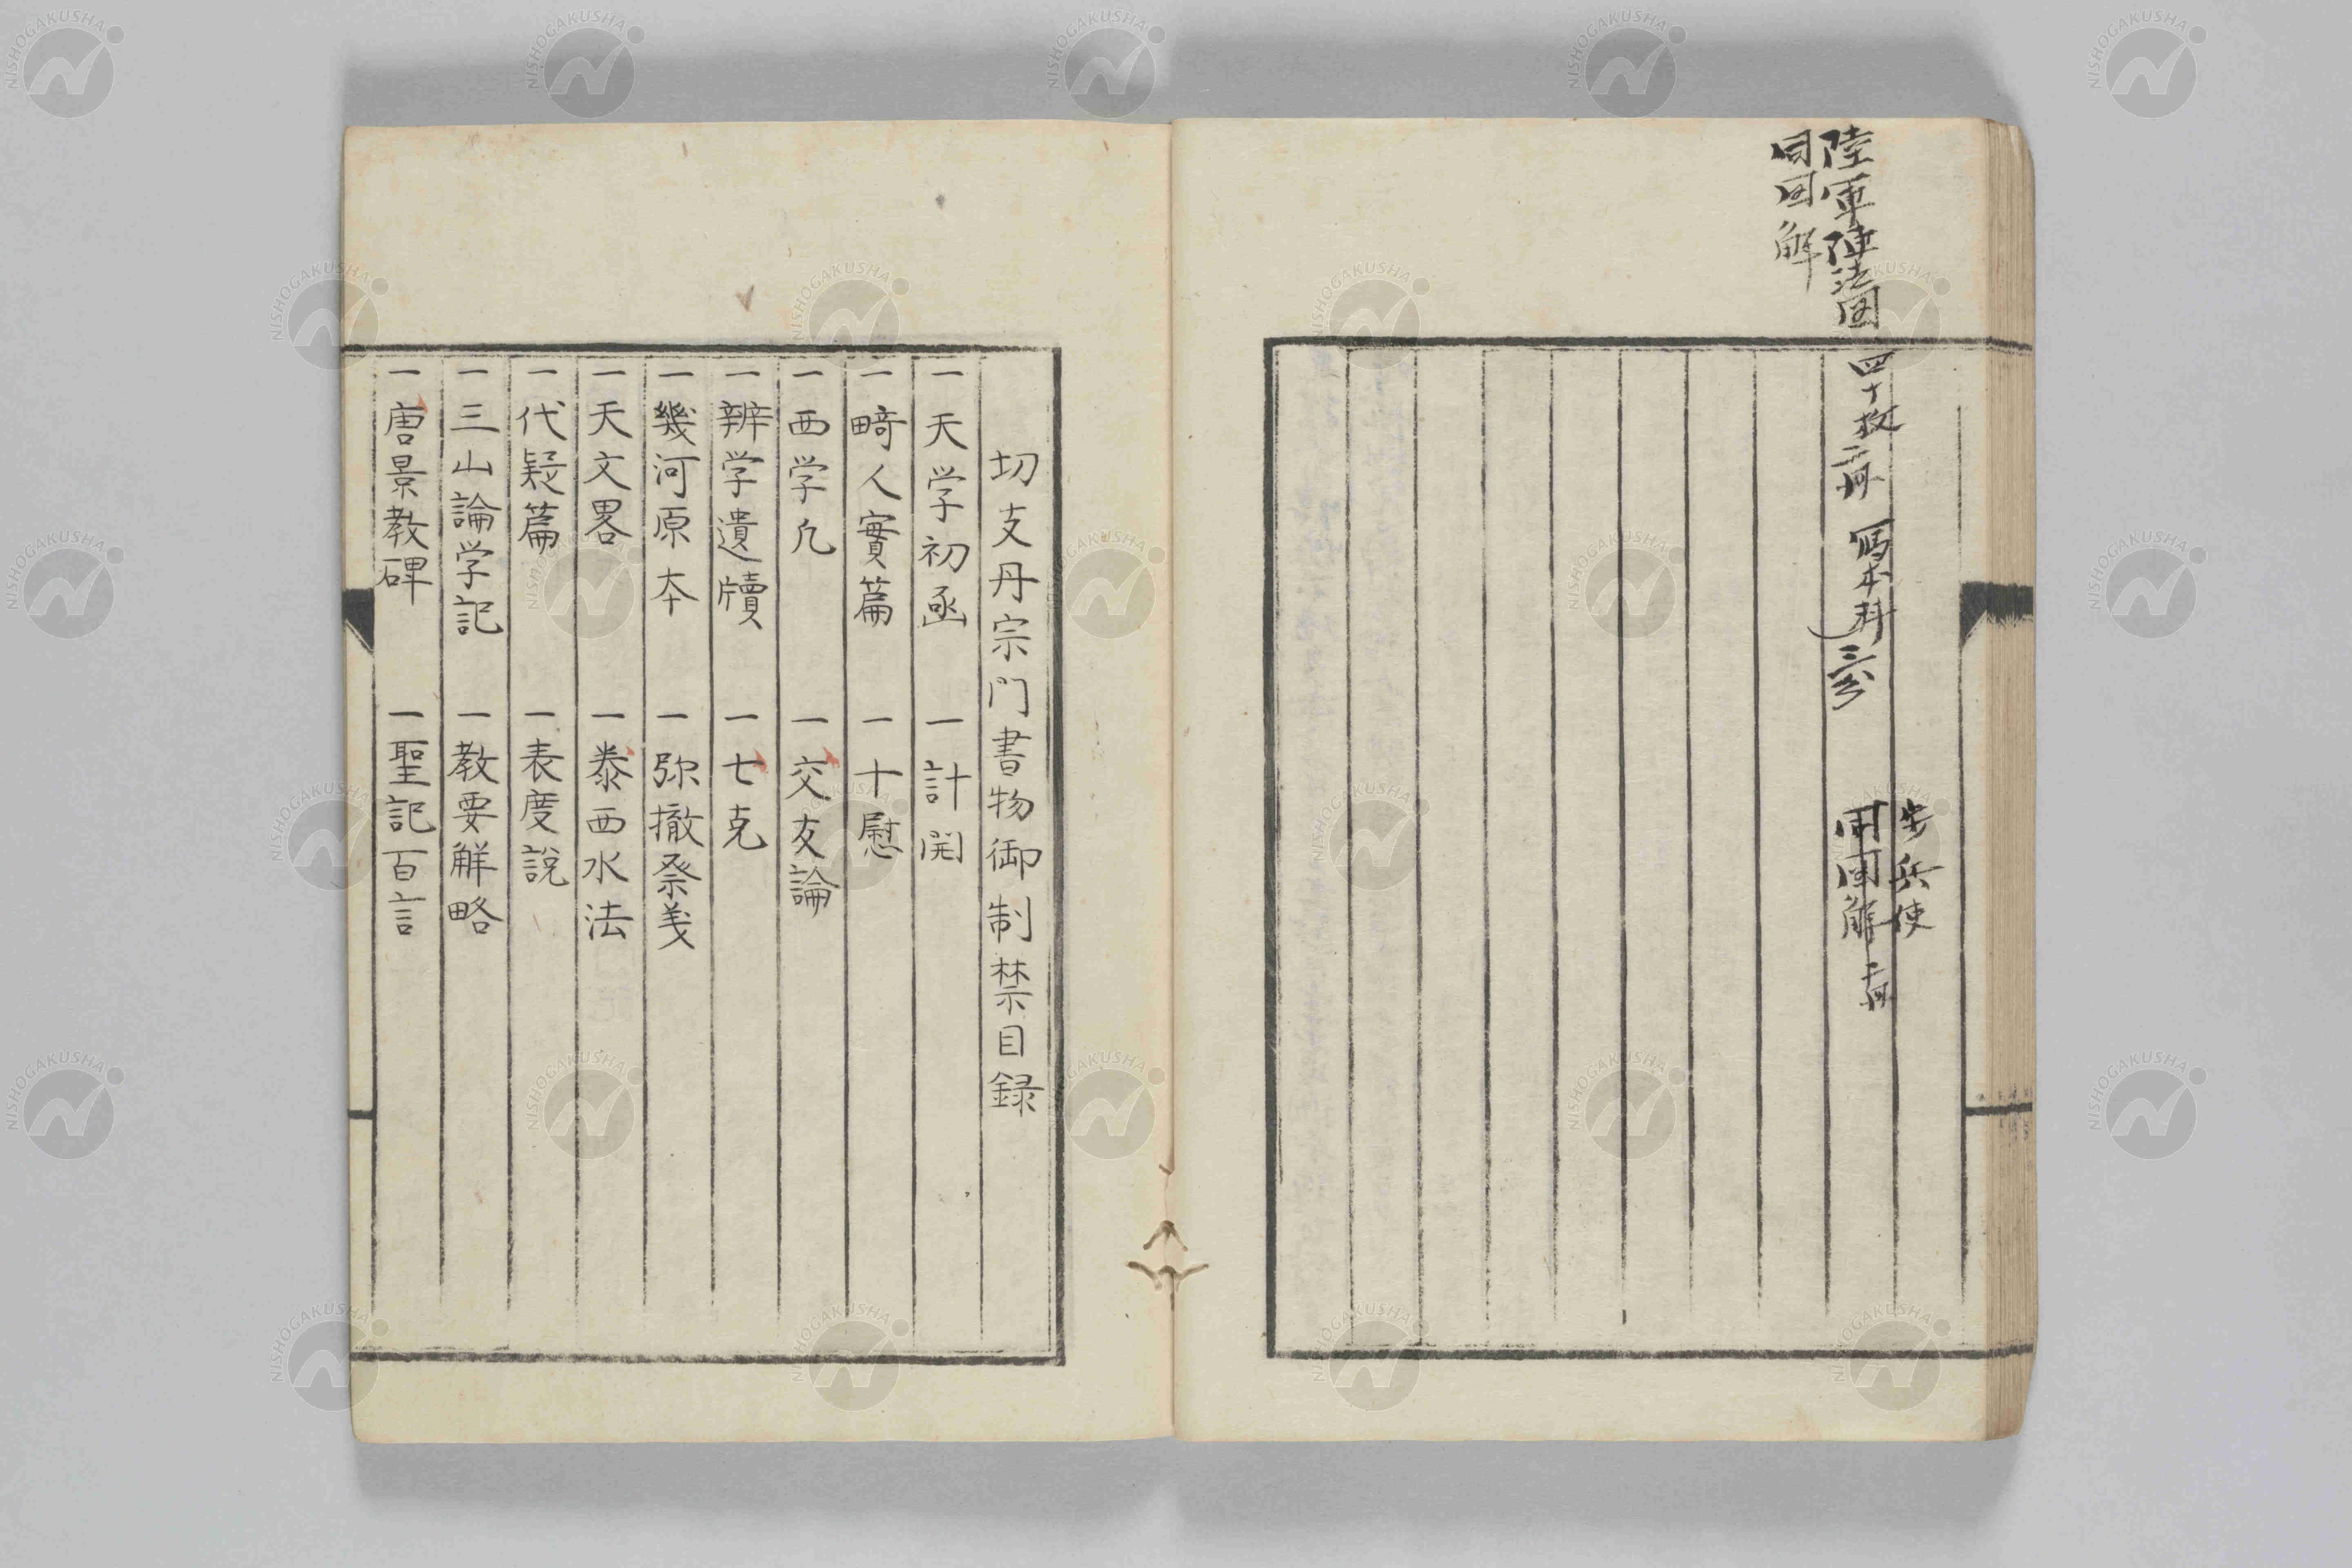 陸軍陣法図
同図解
四十枚二冊
写本料三分
歩兵使
同図解二冊
切支丹宗門書物御制禁目録
一天学初函 一計開
一畸人實篇 一十慰
一西学凡 一交友論
一辨学遺牘 一七克
一幾河原本 一弥撤祭義
一天文畧 一泰西水法
一代疑篇 一表度說
一三山論学記 一教要解略
一唐景教碑 一聖記百言
NISHOGAKUSHA